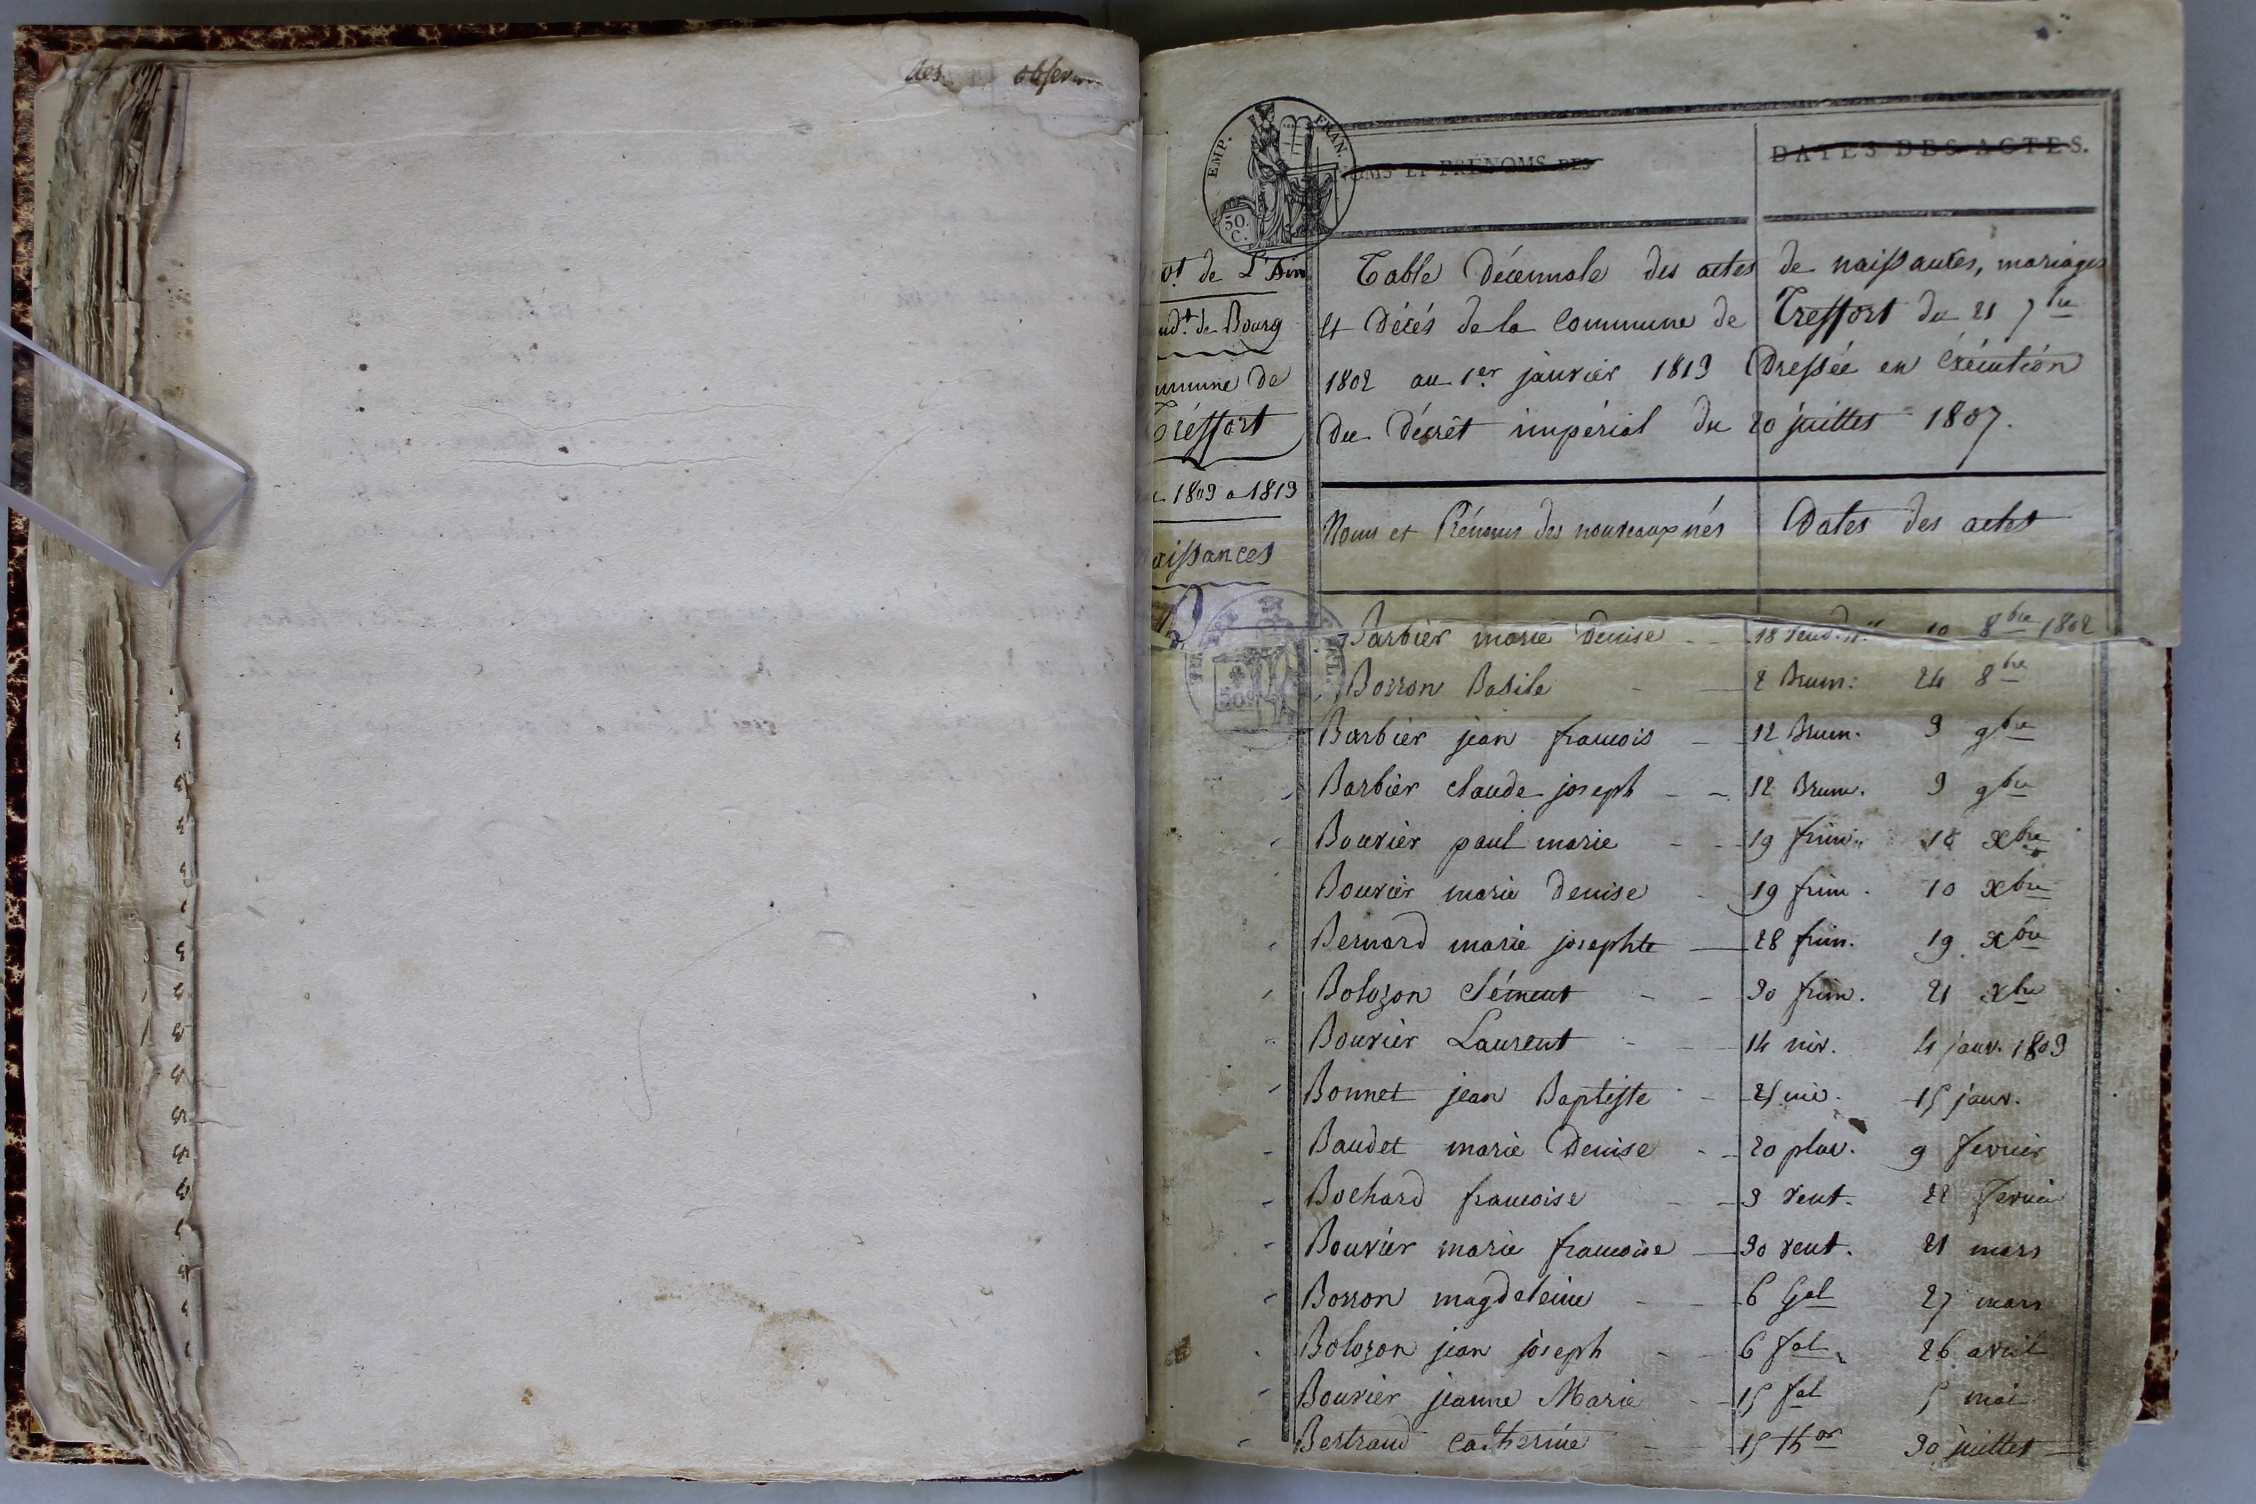 des observ
EMP. FRAN.
50. C.
NOMS ET PRÉNOMS DES
DATES DES ACTES.
ot de L'Ain
ud.t de Bourg
mmune de
Tréffort
1803 a 1813
aissances
Table Décennale des actes de naissances, mariages
et Décés de la Commune de Treffort du 21 7bre
1802 au 1er janvier 1813 Dressée en Exécution
du Décrêt impérial du 20 juillet 1807.
Noms et Prénoms des nouveaux nés Dates des actes
Barbier marie Denise 18 Vend. 11 10 8bre 1802
Borron Basile 2 Brum: 24 8bre
Barbier jean francois 12 Brum. 3 9bre
Barbier claude joseph 12 Brum. 3 9bre
Bouvier paul marie 19 frim. 10 Xbre
Bouvier marie Denise 19 frim. 10 Xbre
Bernard marie josephte 28 frim. 19 Xbre
Bolozon Clément 30 frim. 21 Xbre
Bouvier Laurent 14 niv. 4 janv. 1803
Bonnet jean Baptiste 25 niv. 15 janv.
Baudet marie Denise 20 pluv. 9 fevrier
Bochard francoise 3 vent. 22 fevrier
Bouvier marie francoise 30 vent. 21 mars
Borron magdeleine 6 Gal 27 mars
Bolozon jean joseph 6 fal 26 avril
Bouvier jeanne Marie 15 fal 5 mai
Bertrand catherine 15 thor 30 juillet